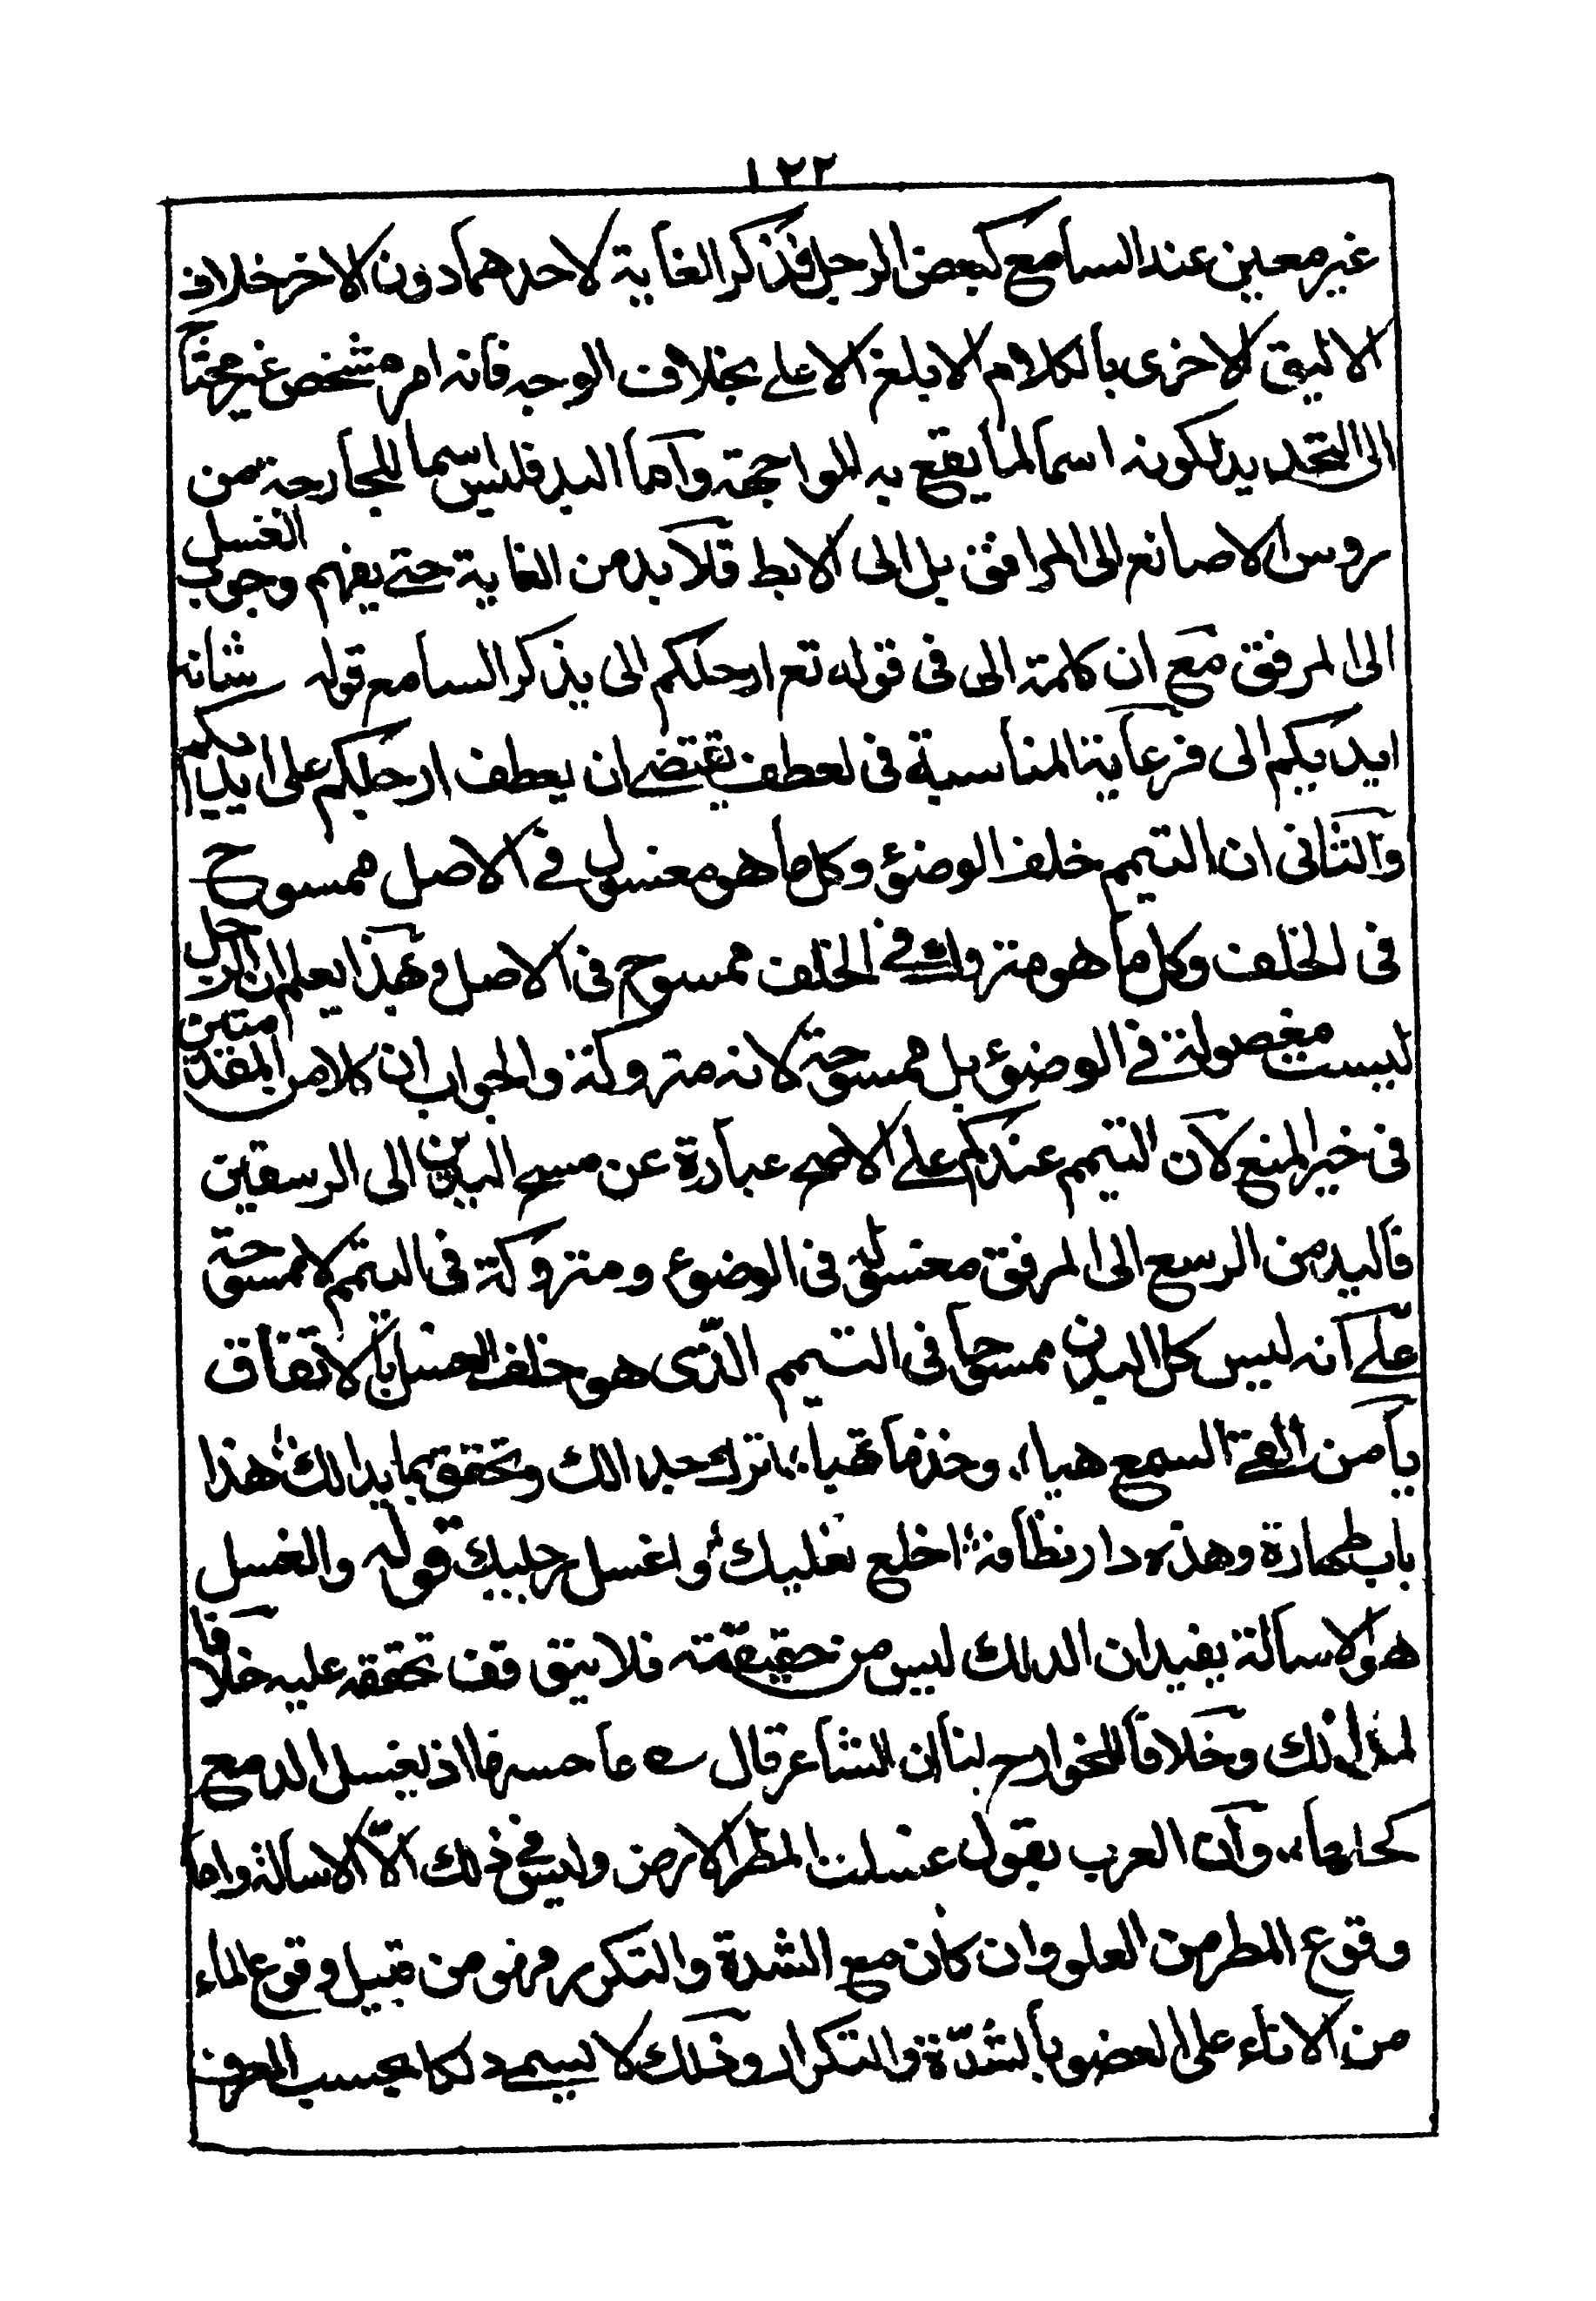 ١٢٢
غير معين عند السامع كبعض الرجل فذكر الغاية لاحدهما دون الاخر خلاف
الاليق الاخرى بالكلام الابلغ الاعلى بخلاف الوجه فانه امر مشخص غير محتاج
الى التحديد لكونه اسما لما يقع به المواجهة واما اليد فليس اسما للجارحة من
روس الاصابع الى المرافق بل الى الابط فلا بد من الغاية حتى يفهم وجوب الغسل
الى المرفق مع ان كلمة الى في قوله تع ارجلكم الى يذكر السامع قوله شانه
ايديكم الى فرعاية المناسبة في لعطف يقتضي ان يعطف ارجلكم على ايديكم
والثاني ان التيمم خلف الوضئ وكل ما هو مغسول في الاصل ممسوح
في الخلف وكل ما هو متروك في الخلف ممسوح في الاصل وبهذا يعلم ان الرجل
ليست مغصولة في الوضوء بل ممسوحة لانه متروكة والجواب ان كلا من المقدمتين
في خير المنع لان التيمم عندكم على الاصح عبارة عن مسح اليدين الى الرسغين
فاليد من الرسغ الى المرفق مغسولة في الوضوع ومتروكة في التيمم لا ممسوحة
على انه ليس كل البدن ممسوحا في التيمم الذى هو خلف الغسل بالاتفاق
يا من القى السمع هيا، وخذ ما تهيا، اترك جدالك وتحقق بما بدا لك هذا
باب طهارة وهذه دار نظافة اخلع نعليك واغسل رجليك قوله والغسل
هو الاسالة يفيد ان الدلك ليس من حقيقته فلا يتوقف تحققه عليه خلافا
لمالك وخلافا للخوارج لنا ان الشاعر قال حسنها اذ يغسل الدمع
كحلها،، وان العرب يقول غسلت المطر الارض وليس في ذلك الا الاسالة واما
وقوع المطر من العلو وان كان مع الشدة والتكرير فهو من قبيل وقوع الماء
من الاناء على العضو بالشدة والتكرار وذلك لا يسمى دلكا بحسب العرف